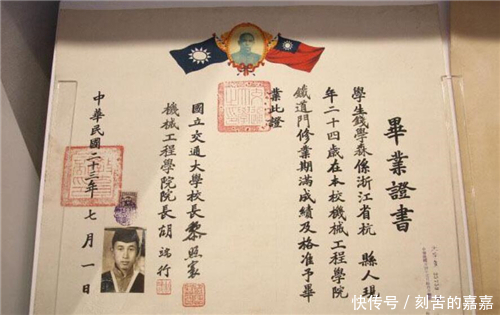 畢業證書
學生錢學森係浙江省杭縣人現
年二十四歲在本校機械工程學院
鐵道門修業期滿成績及格准予畢
業此證
國立交通大學校長黎照寰
機械工程學院院長胡端行
中華民國二十三年七月一日
快传号/刻苦的嘉嘉